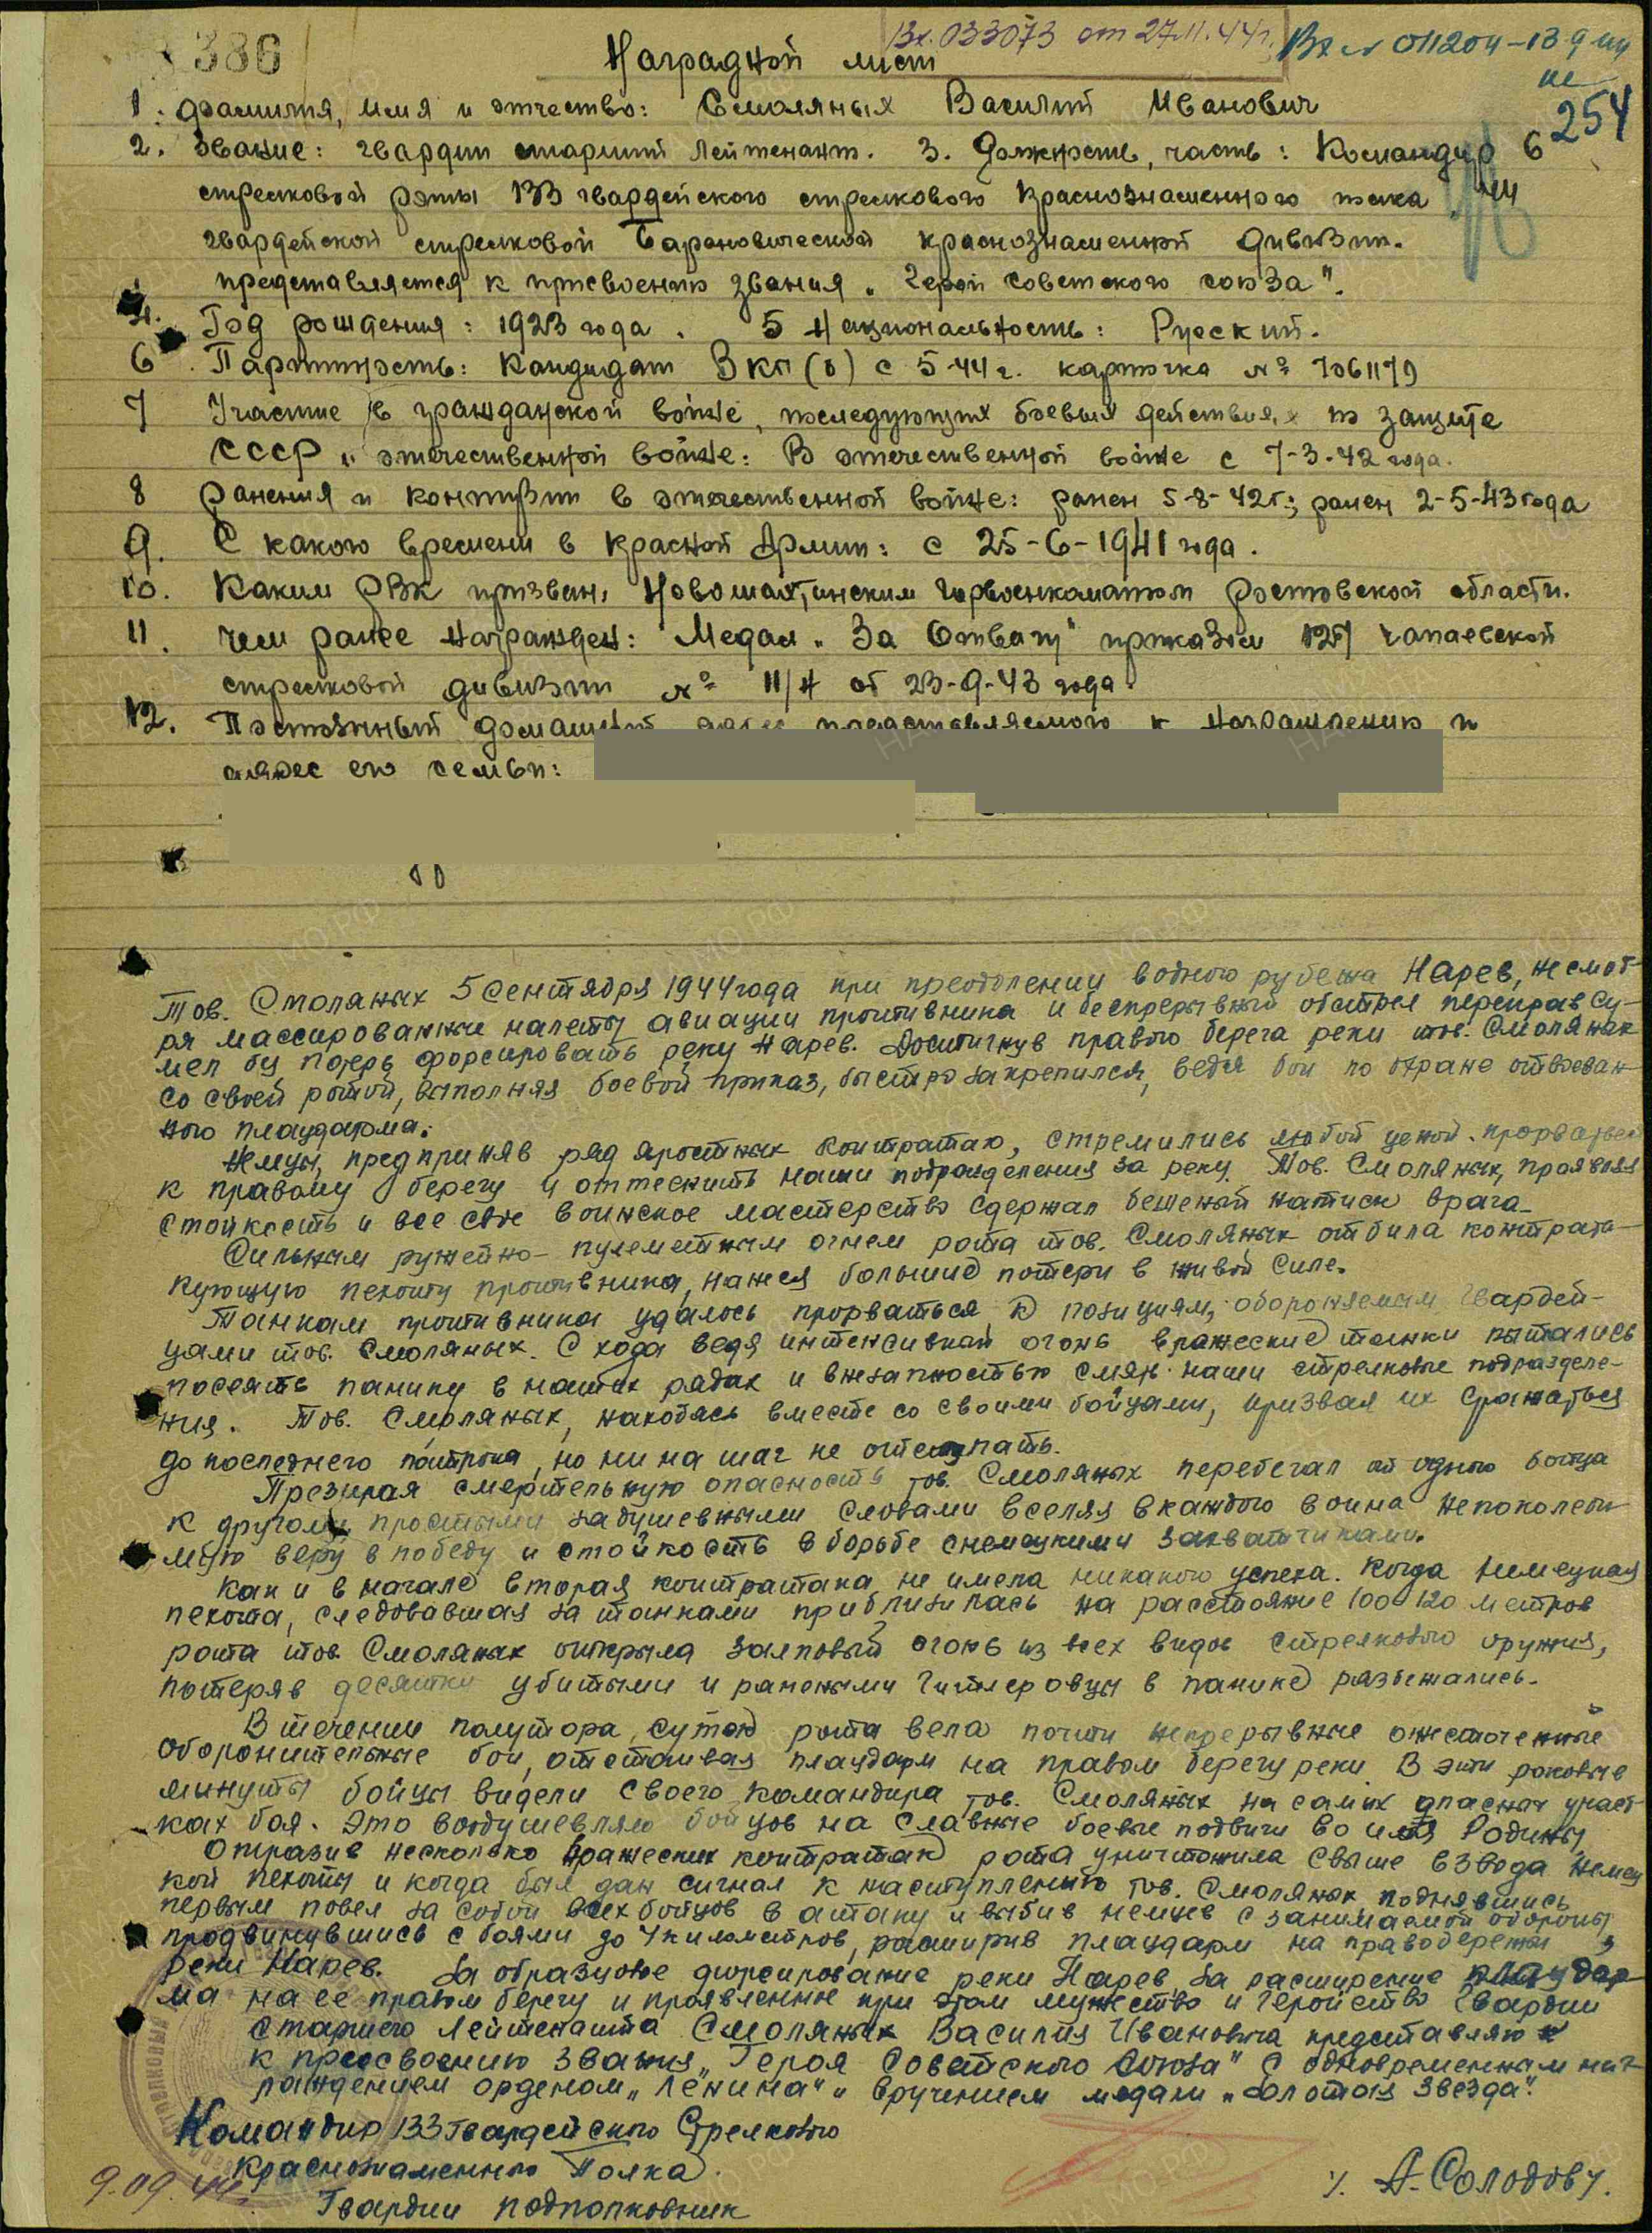 386
Вх. 033073 от 27.11.44г.
Наградной лист
254
1. Фамилия, имя и отчество: Смоляных Василий Иванович
2. Звание: гвардии старший лейтенант. 3. Должность, часть: Командир 6
стрелковой роты 133 гвардейского стрелкового Краснознаменного полка 44
гвардейской стрелковой Барановической краснознаменной дивизии.
представляется к присвоению звания „Герой Советского союза".
4. Год рождения: 1923 года. 5 Национальность: Русский.
6. Партийность: Кандидат ВКП(б) с 5-44г. карточка № 7061179
7 Участие в гражданской войне, последующих боевых действиях по защите
СССР и отечественной войне: В отечественной войне с 7-3-42 года.
8 Ранения и контузии в отечественной войне: ранен 5-8-42г.; ранен 2-5-43 года
9. С какого времени в красной Армии: с 25-6-1941 года.
10. Каким РВК призван: Новошахтинским Горвоенкоматом Ростовской области.
11. Чем ранее награжден: Медаль „За Отвагу" приказом 127 Чапаевской
стрелковой дивизии № 11/н от 23-9-43 года.
12. Постоянный домашний адрес представляемого к награждению и
адрес его семьи:
Тов. Смоляных 5 сентября 1944 года при преодолении водного рубежа Нарев, несмот-
ря массированные налеты авиации противника и беспрерывный обстрел переправ су-
мел без потерь форсировать реку Нарев. Достигнув правого берега реки тов. Смоляных
со своей ротой, выполняя боевой приказ, быстро закрепился, ведя бой по охране отвоеван-
ного плацдарма.
Немцы, предприняв ряд яростных контратак, стремились любой ценой прорваться
к правому берегу и оттеснить наши подразделения за реку. Тов. Смоляных, проявляя
стойкость и все свое воинское мастерство сдержал бешеный натиск врага.
Сильным ружейно-пулеметным огнем рота тов. Смоляных отбила контрата-
кующую пехоту противника, нанеся большие потери в живой силе.
Танкам противника удалось прорваться к позициям, обороняемым гвардей-
цами тов. Смоляных. С хода ведя интенсивный огонь вражеские танки пытались
посеять панику в наших рядах и внезапностью смять наши стрелковые подразделе-
ния. Тов. Смоляных, находясь вместе со своими бойцами, призвал их сражаться
до последнего патрона, но ни на шаг не отступать.
Презирая смертельную опасность тов. Смоляных перебегал от одного бойца
к другому простыми задушевными словами вселяя в каждого воина непоколеби-
мую веру в победу и стойкость в борьбе с немецкими захватчиками.
Как и в начале вторая контратака не имела никакого успеха. Когда немецкая
пехота, следовавшая за танками приблизилась на расстояние 100-120 метров
рота тов. Смоляных открыла залповый огонь из всех видов стрелкового оружия,
потеряв десятки убитыми и ранеными Гитлеровцы в панике разбежались.
В течении полутора суток рота вела почти непрерывные ожесточенные
оборонительные бои, отстаивая плацдарм на правом берегу реки. В эти роковые
минуты бойцы видели своего командира тов. Смоляных на самых опасных участ-
ках боя. Это воодушевляло бойцов на славные боевые подвиги во имя Родины.
Отразив несколько вражеских контратак рота уничтожила свыше взвода немец-
кой пехоты и когда был дан сигнал к наступлению тов. Смоляных поднявшись
первым повел за собой всех бойцов в атаку и выбив немцев с занимаемой обороны
продвинувшись с боями до 4 километров, расширив плацдарм на правобережьи
реки Нарев. За образцовое форсирование реки Нарев, за расширение плацдар-
ма на ее правом берегу и проявленное при этом мужество и геройство гвардии
старшего лейтенанта Смоляных Василия Ивановича представляю
к присвоению звания „Героя Советского Союза" с одновременным наг-
раждением орденом „Ленина" и вручением медали „Золотая Звезда".
Командир 133 Гвардейского Стрелкового
Краснознаменного Полка
9.09.44г.
Гвардии подполковник
А. Солодов